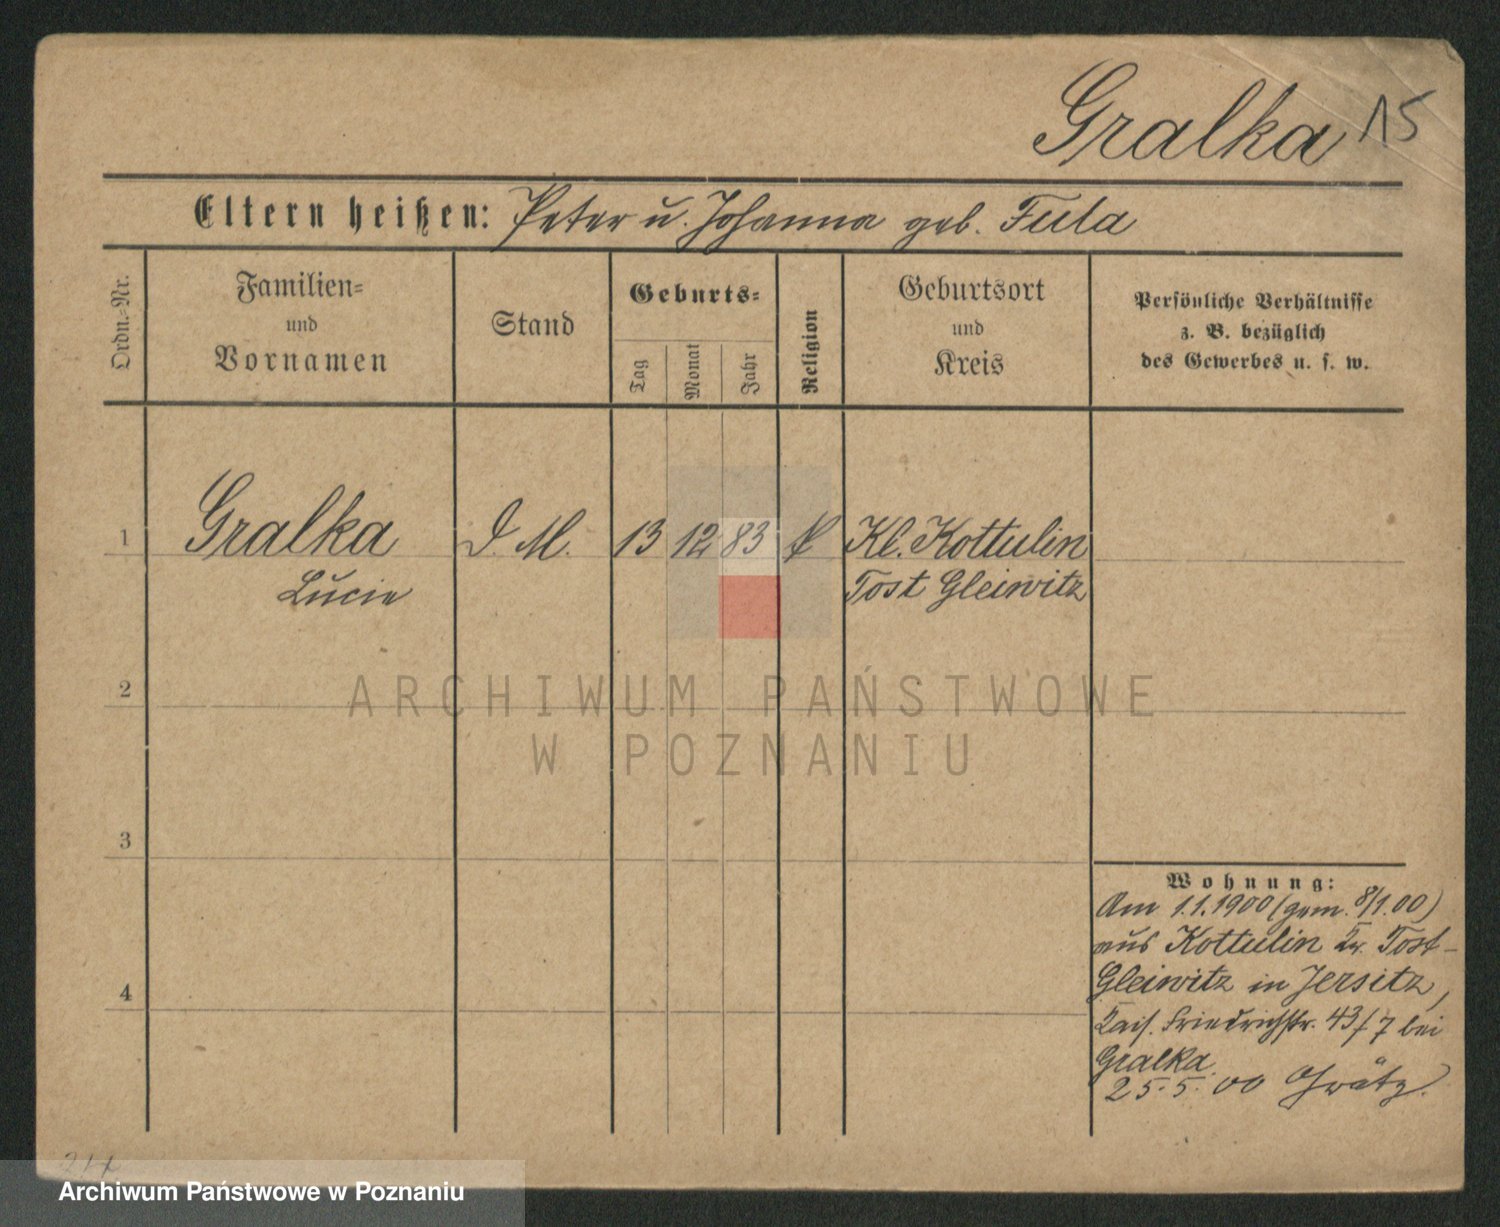 Gralka 15
Eltern heißen: Peter u. Johanna geb. Fula
Ordn.-Nr.
Familien-
und
Vornamen
Stand
Geburts-
Tag
Monat
Jahr
Religion
Geburtsort
und
Kreis
Persönliche Verhältnisse
z. B. bezüglich
des Gewerbes u. s. w.
1 Gralka D. M. 13 12 83 k Kl. Kottulin
Lucie Tost Gleiwitz
ARCHIWUM PAŃSTWOWE
W POZNANIU
2
3
4
Wohnung:
Am 1.1.1900 (gem. 8/1.00)
aus Kottulin Kr. Tost-
Gleiwitz in Jersitz,
Kais. Friedrichstr. 43/7 bei
Gralka.
25.5.00
Archiwum Państwowe w Poznaniu